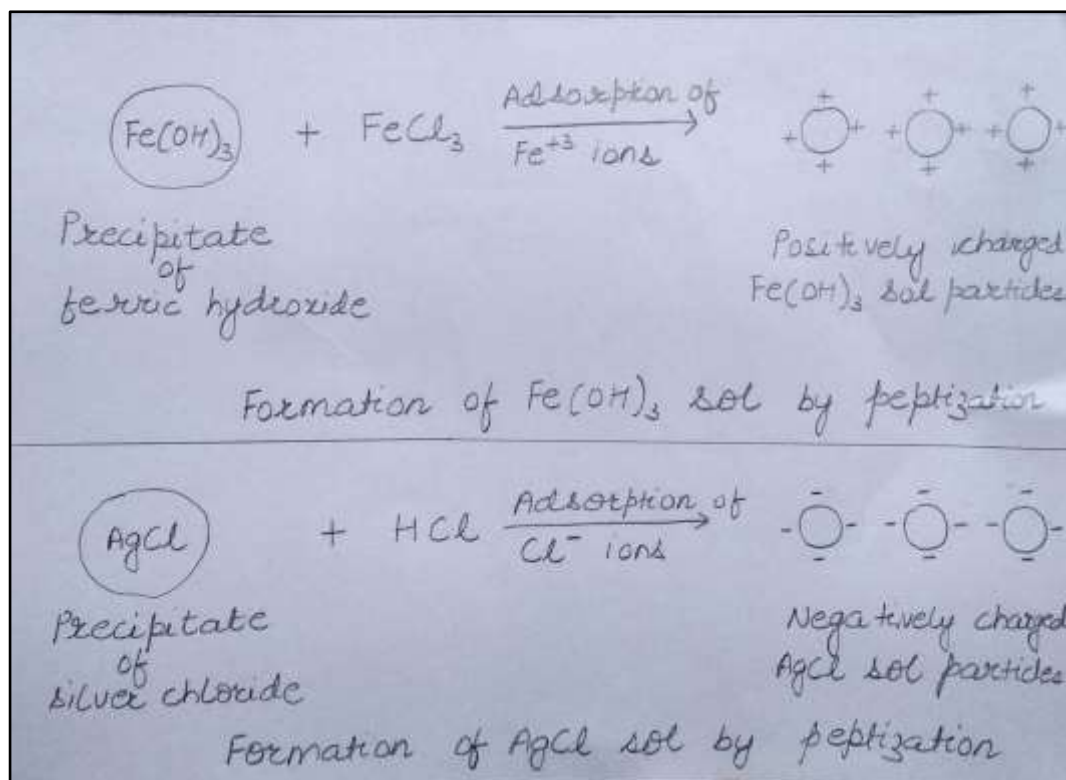 Fe(OH)₃ + FeCl₃ Adsorption of
Fe⁺³ ions
+ + +
+ + + + + +
+ + +
Precipitate
of
ferric hydroxide
Positively charged
Fe(OH)₃ sol particles
Formation of Fe(OH)₃ sol by peptization
AgCl + HCl Adsorption of
Cl⁻ ions
- - -
- - - - - -
- - -
Precipitate
of
silver chloride
Negatively charged
AgCl sol particles
Formation of AgCl sol by peptization